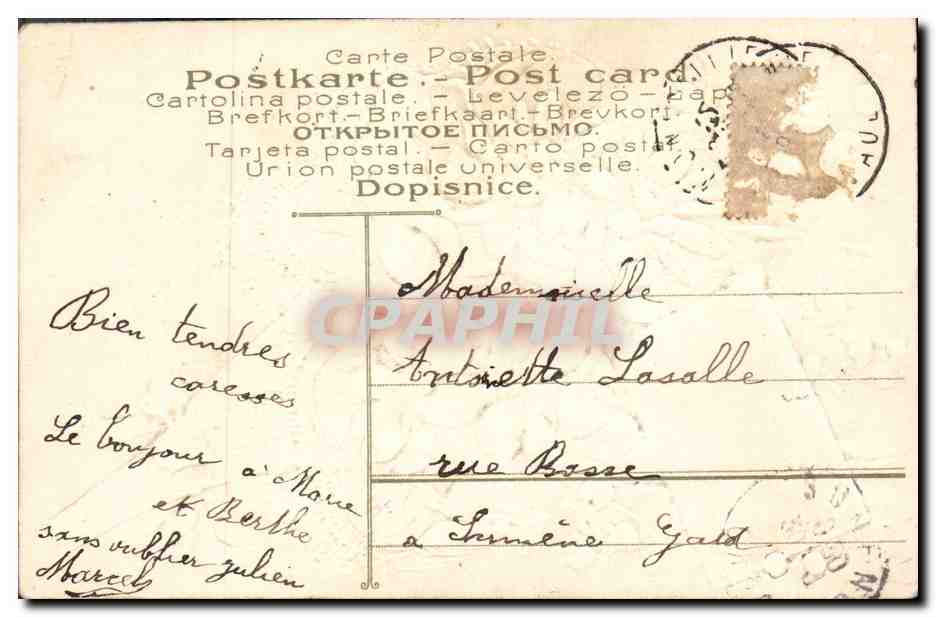 Carte Postale.
Postkarte. - Post card
Cartolina postale. - Levelező - Lap
Brefkort. - Briefkaart. - Brevkort
ОТКРЫТОЕ ПИСЬМО.
Tarjeta postal. - Carto postal
Union postale universelle.
Dopisnice.
Bien tendres
caresses
Le bonjour à Marie
et Berthe
sans oublier Julien
Marcel
Mademoiselle
Antoinette Lasalle
rue Basse
à Sumène Gard
CPAPHIL